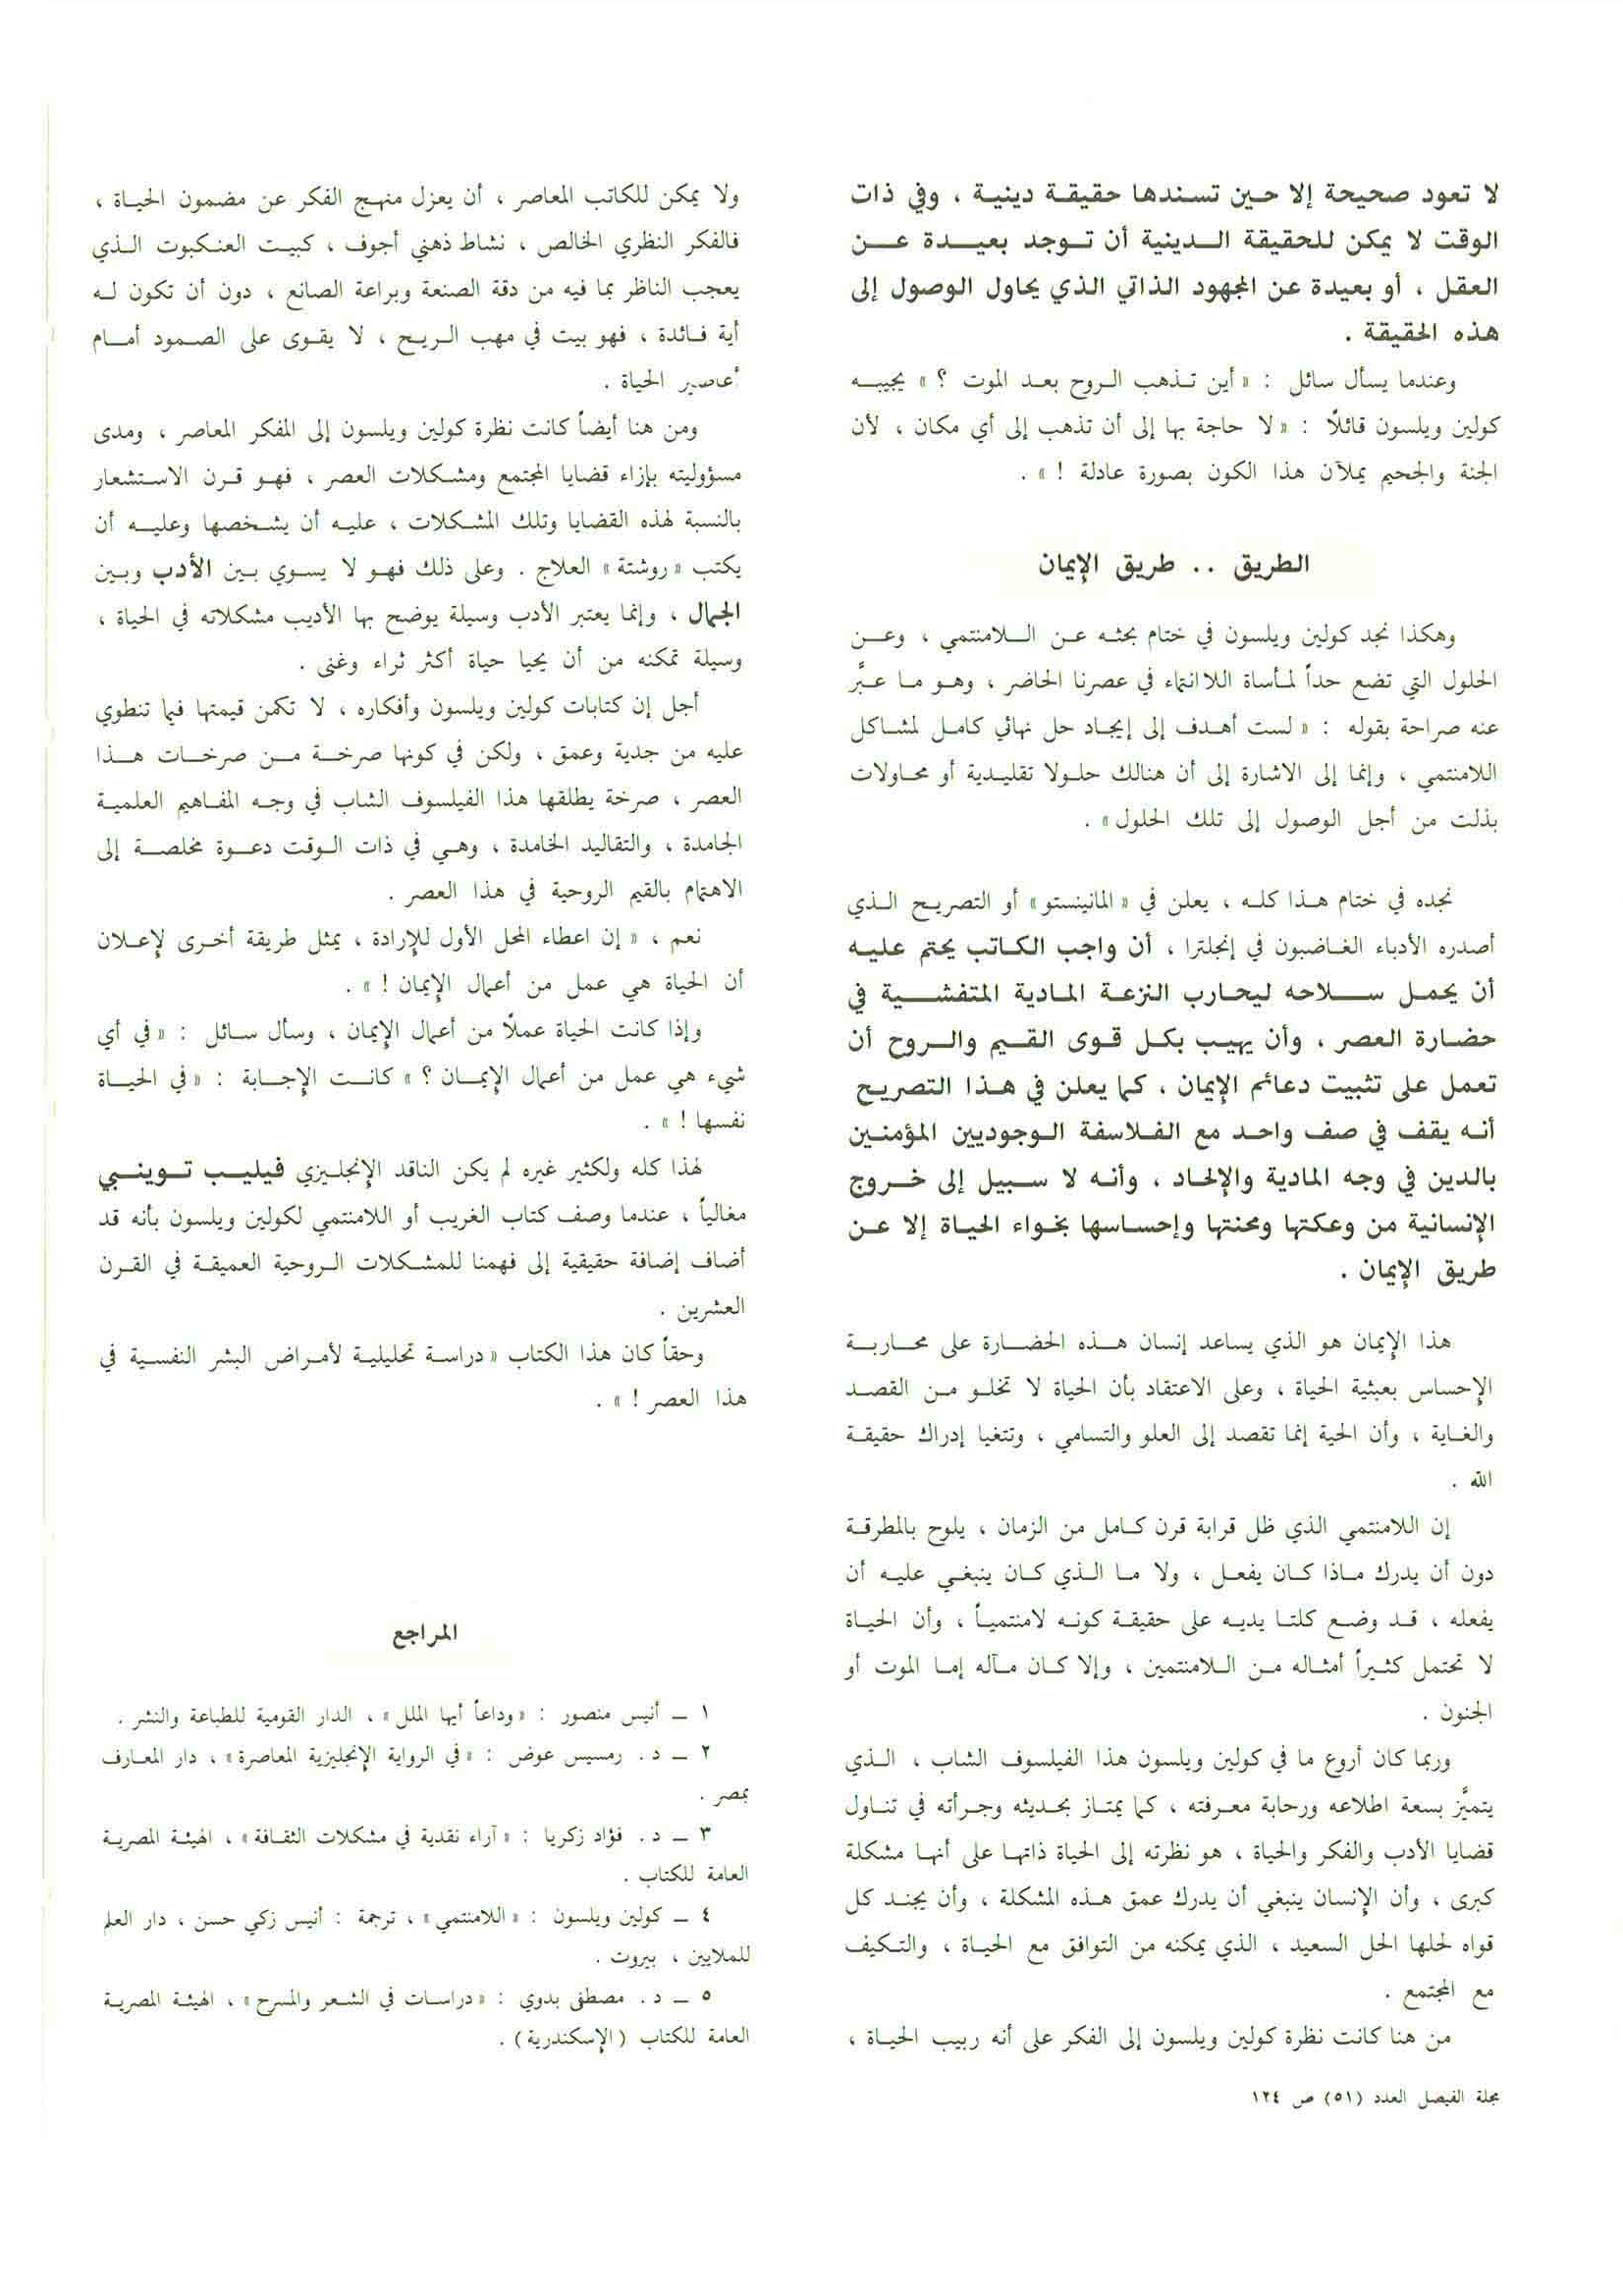 لا تعود صحيحة إلا حين تسندها حقيقة دينية ، وفي ذات
الوقت لا يمكن للحقيقة الدينية أن توجد بعيدة عن
العقل ، أو بعيدة عن المجهود الذاتي الذي يحاول الوصول إلى
هذه الحقيقة .
وعندما يسأل سائل : « أين تذهب الروح بعد الموت ؟ » يجيبه
كولين ويلسون قائلًا : « لا حاجة بها إلى أن تذهب إلى أي مكان ، لأن
الجنة والجحيم يملآن هذا الكون بصورة عادلة ! » .
الطريق .. طريق الإيمان
وهكذا نجد كولين ويلسون في ختام بحثه عن اللامنتمي ، وعن
الحلول التي تضع حداً لمأساة اللاانتماء في عصرنا الحاضر ، وهو ما عبَّر
عنه صراحة بقوله : « لست أهدف إلى إيجاد حل نهائي كامل لمشاكل
اللامنتمي ، وإنما إلى الاشارة إلى أن هنالك حلولا تقليدية أو محاولات
بذلت من أجل الوصول إلى تلك الحلول » .
نجده في ختام هذا كله ، يعلن في « المانيستو » أو التصريح الذي
أصدره الأدباء الغاضبون في إنجلترا ، أن واجب الكاتب يحتم عليه
أن يحمل سلاحه ليحارب النزعة المادية المتفشية في
حضارة العصر ، وأن يهيب بكل قوى القيم والروح أن
تعمل على تثبيت دعائم الإيمان ، كما يعلن في هذا التصريح
أنه يقف في صف واحد مع الفلاسفة الوجوديين المؤمنين
بالدين في وجه المادية والإلحاد ، وأنه لا سبيل إلى خروج
الإنسانية من وعكتها ومحنتها وإحساسها بخواء الحياة إلا عن
طريق الإيمان .
هذا الإيمان هو الذي يساعد إنسان هذه الحضارة على محاربة
الإحساس بعبثية الحياة ، وعلى الاعتقاد بأن الحياة لا تخلو من القصد
والغاية ، وأن الحية إنما تقصد إلى العلو والتسامي ، وتتغيا إدراك حقيقة
الله .
إن اللامنتمي الذي ظل قرابة قرن كامل من الزمان ، يلوح بالمطرقة
دون أن يدرك ماذا كان يفعل ، ولا ما الذي كان ينبغي عليه أن
يفعله ، قد وضع كلتا يديه على حقيقة كونه لامنتمياً ، وأن الحياة
لا تحتمل كثيراً أمثاله من اللامنتمين ، وإلا كان مآله إما الموت أو
الجنون .
وربما كان أروع ما في كولين ويلسون هذا الفيلسوف الشاب ، الذي
يتميَّز بسعة اطلاعه ورحابة معرفته ، كما يمتاز بحديثه وجرأته في تناول
قضايا الأدب والفكر والحياة ، هو نظرته إلى الحياة ذاتها على أنها مشكلة
كبرى ، وأن الإنسان ينبغي أن يدرك عمق هذه المشكلة ، وأن يجند كل
قواه لحلها الحل السعيد ، الذي يمكنه من التوافق مع الحياة ، والتكيف
مع المجتمع .
من هنا كانت نظرة كولين ويلسون إلى الفكر على أنه ربيب الحياة ،
ولا يمكن للكاتب المعاصر ، أن يعزل منهج الفكر عن مضمون الحياة ،
فالفكر النظري الخالص ، نشاط ذهني أجوف ، كبيت العنكبوت الذي
يعجب الناظر بما فيه من دقة الصنعة وبراعة الصانع ، دون أن تكون له
أية فائدة ، فهو بيت في مهب الريح ، لا يقوى على الصمود أمام
أعاصير الحياة .
ومن هنا أيضاً كانت نظرة كولين ويلسون إلى المفكر المعاصر ، ومدى
مسؤوليته بإزاء قضايا المجتمع ومشكلات العصر ، فهو قرن الاستشعار
بالنسبة لهذه القضايا وتلك المشكلات ، عليه أن يشخصها وعليه أن
يكتب « روشتة » العلاج . وعلى ذلك فهو لا يسوي بين الأدب وبين
الجمال ، وإنما يعتبر الأدب وسيلة يوضح بها الأديب مشكلاته في الحياة ،
وسيلة تمكنه من أن يحيا حياة أكثر ثراء وغنى .
أجل إن كتابات كولين ويلسون وأفكاره ، لا تكمن قيمتها فيما تنطوي
عليه من جدية وعمق ، ولكن في كونها صرخة من صرخات هذا
العصر ، صرخة يطلقها هذا الفيلسوف الشاب في وجه المفاهيم العلمية
الجامدة ، والتقاليد الخامدة ، وهي في ذات الوقت دعوة مخلصة إلى
الاهتمام بالقيم الروحية في هذا العصر .
نعم ، « إن اعطاء المحل الأول للإرادة ، يمثل طريقة أخرى لإعلان
أن الحياة هي عمل من أعمال الإيمان ! » .
وإذا كانت الحياة عملًا من أعمال الإيمان ، وسأل سائل : « في أي
شيء هي عمل من أعمال الإيمان ؟ » كانت الإجابة : « في الحياة
نفسها ! » .
لهذا كله ولكثير غيره لم يكن الناقد الإنجليزي فيليب توينبي
مغالياً ، عندما وصف كتاب الغريب أو اللامنتمي لكولين ويلسون بأنه قد
أضاف إضافة حقيقية إلى فهمنا للمشكلات الروحية العميقة في القرن
العشرين .
وحقاً كان هذا الكتاب « دراسة تحليلية لأمراض البشر النفسية في
هذا العصر ! » .
المراجع
١ ــ أنيس منصور : « وداعاً أيها الملل » ، الدار القومية للطباعة والنشر .
٢ ــ د. رمسيس عوض : « في الرواية الإنجليزية المعاصرة » ، دار المعارف
بمصر .
٣ ــ د. فؤاد زكريا : « آراء نقدية في مشكلات الثقافة » ، الهيئة المصرية
العامة للكتاب .
٤ ــ كولين ويلسون : « اللامنتمي » ، ترجمة : أنيس زكي حسن ، دار العلم
للملايين ، بيروت .
٥ ــ د. مصطفى بدوي : « دراسات في الشعر والمسرح » ، الهيئة المصرية
العامة للكتاب ( الإسكندرية ) .
مجلة الفيصل العدد (٥١) ص ١٢٤